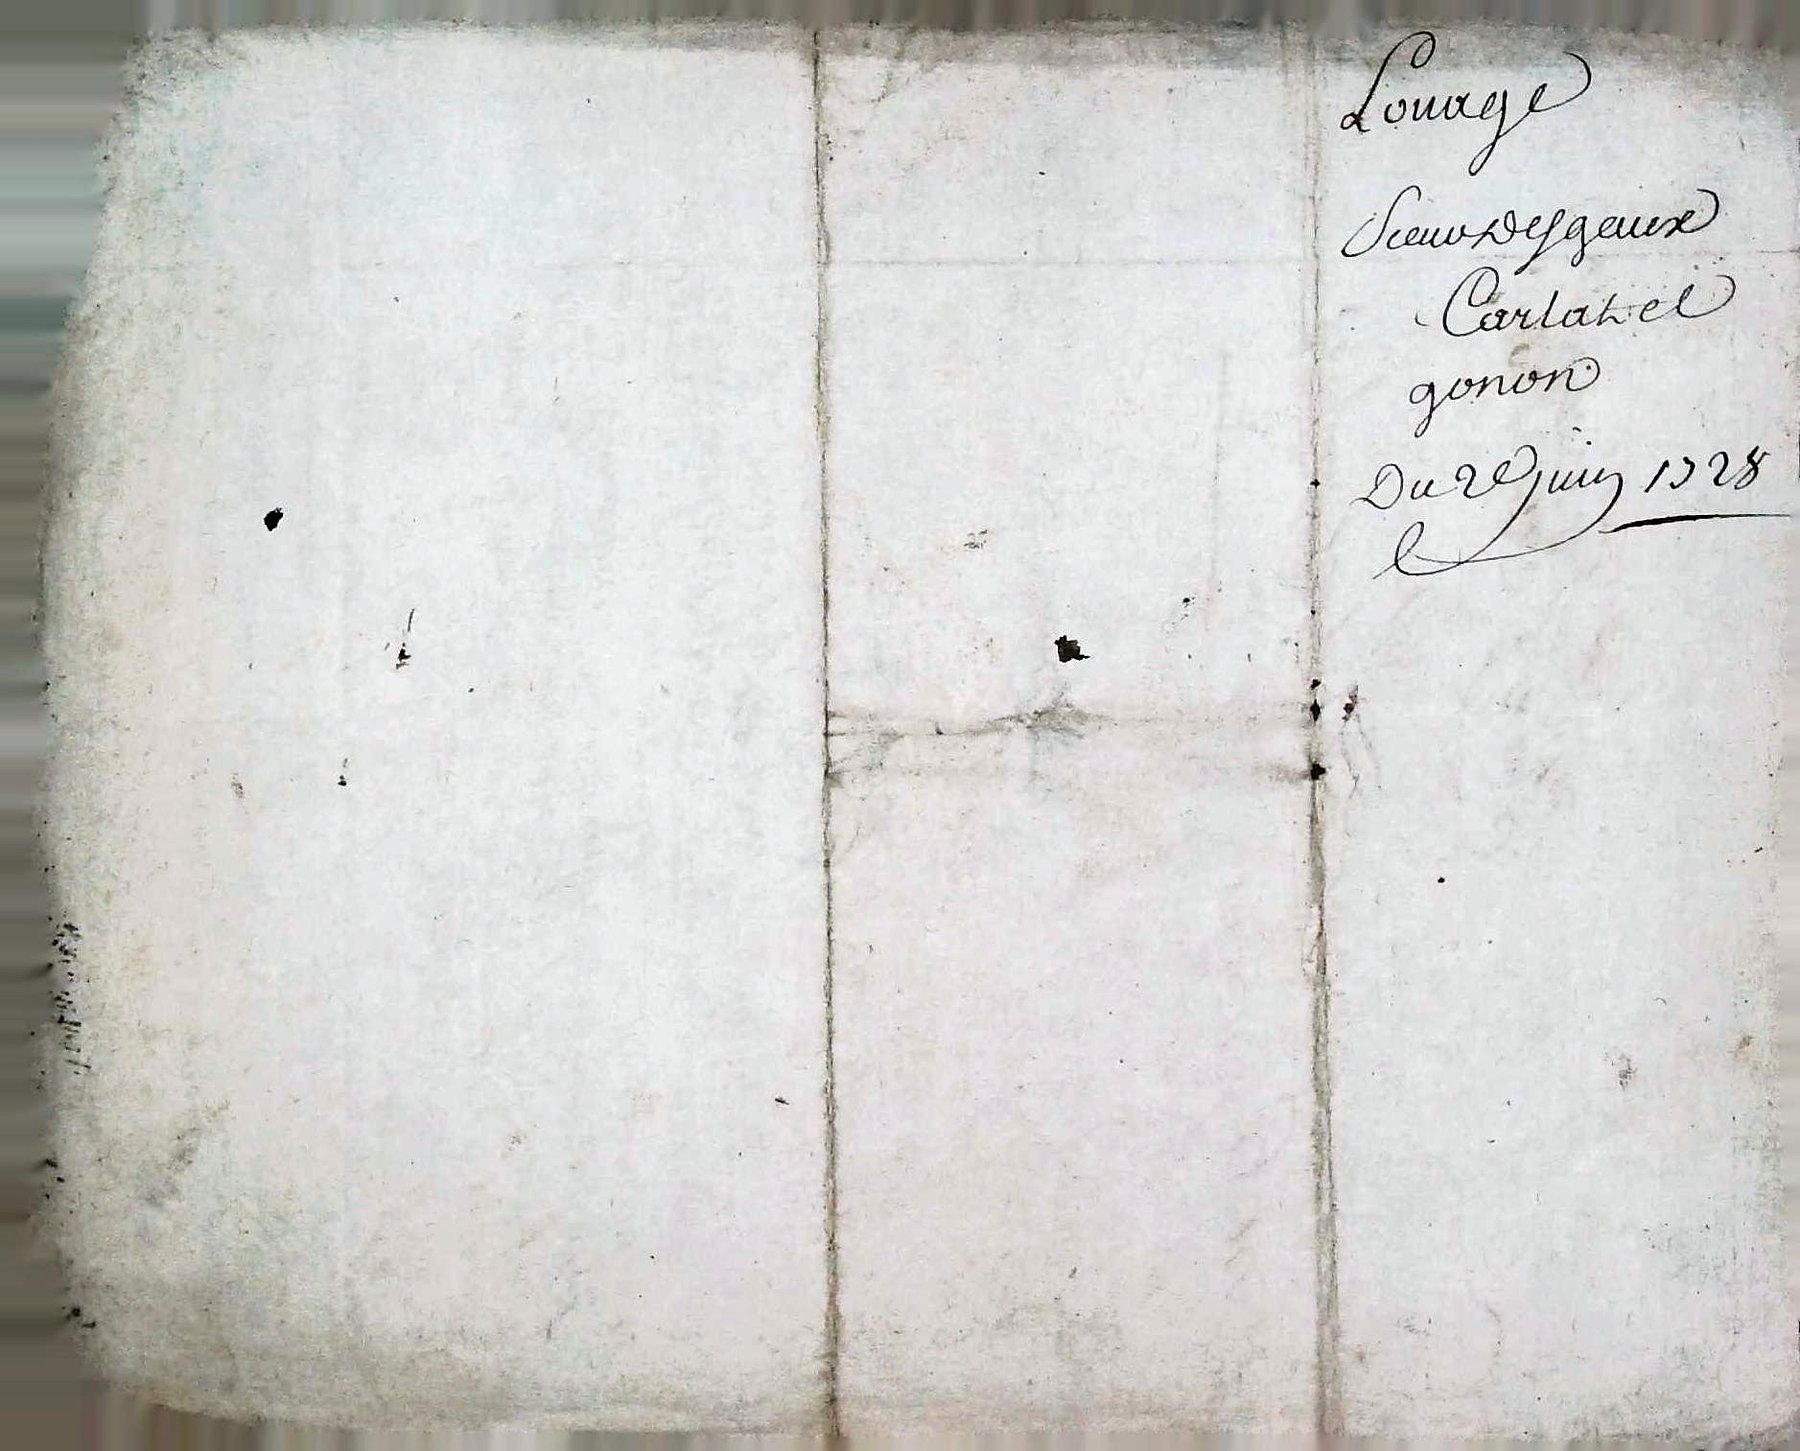 Louage
Sieurs Desgeaux
Carlat et
gonon
Du 2e juin 1728